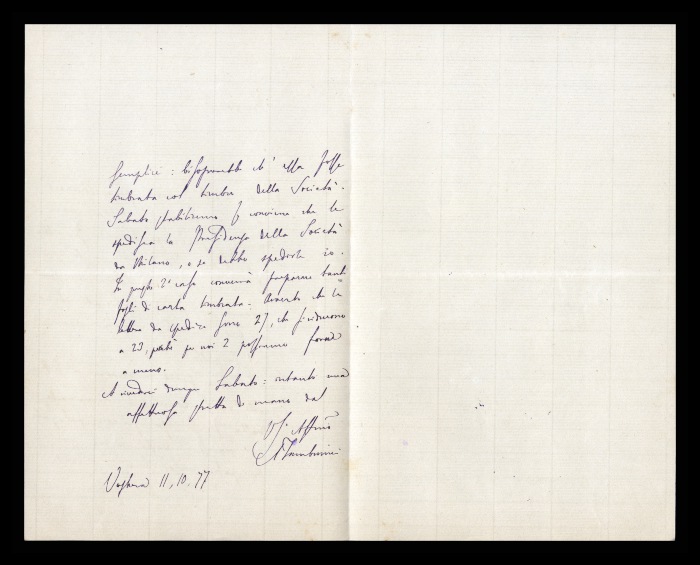 semplici: bisognerebbe ch' ella fosse
timbrata col timbro della Società.
Sabato stabiliremo se conviene che le
spedisca la Presidenza della Società
da Milano, o se debbo spedirle io.
In questo 2° caso converrà preparare tanti
fogli di carta timbrata. Avverto che le
lettere da spedire sono 27, che si riducono
a 23, perchè per noi 2 possiamo farne
a meno.
A rivederci dunque Sabato: intanto una
affettuosa stretta di mano dal
Affmo
Tamburini
Voghera 11, 10. 77